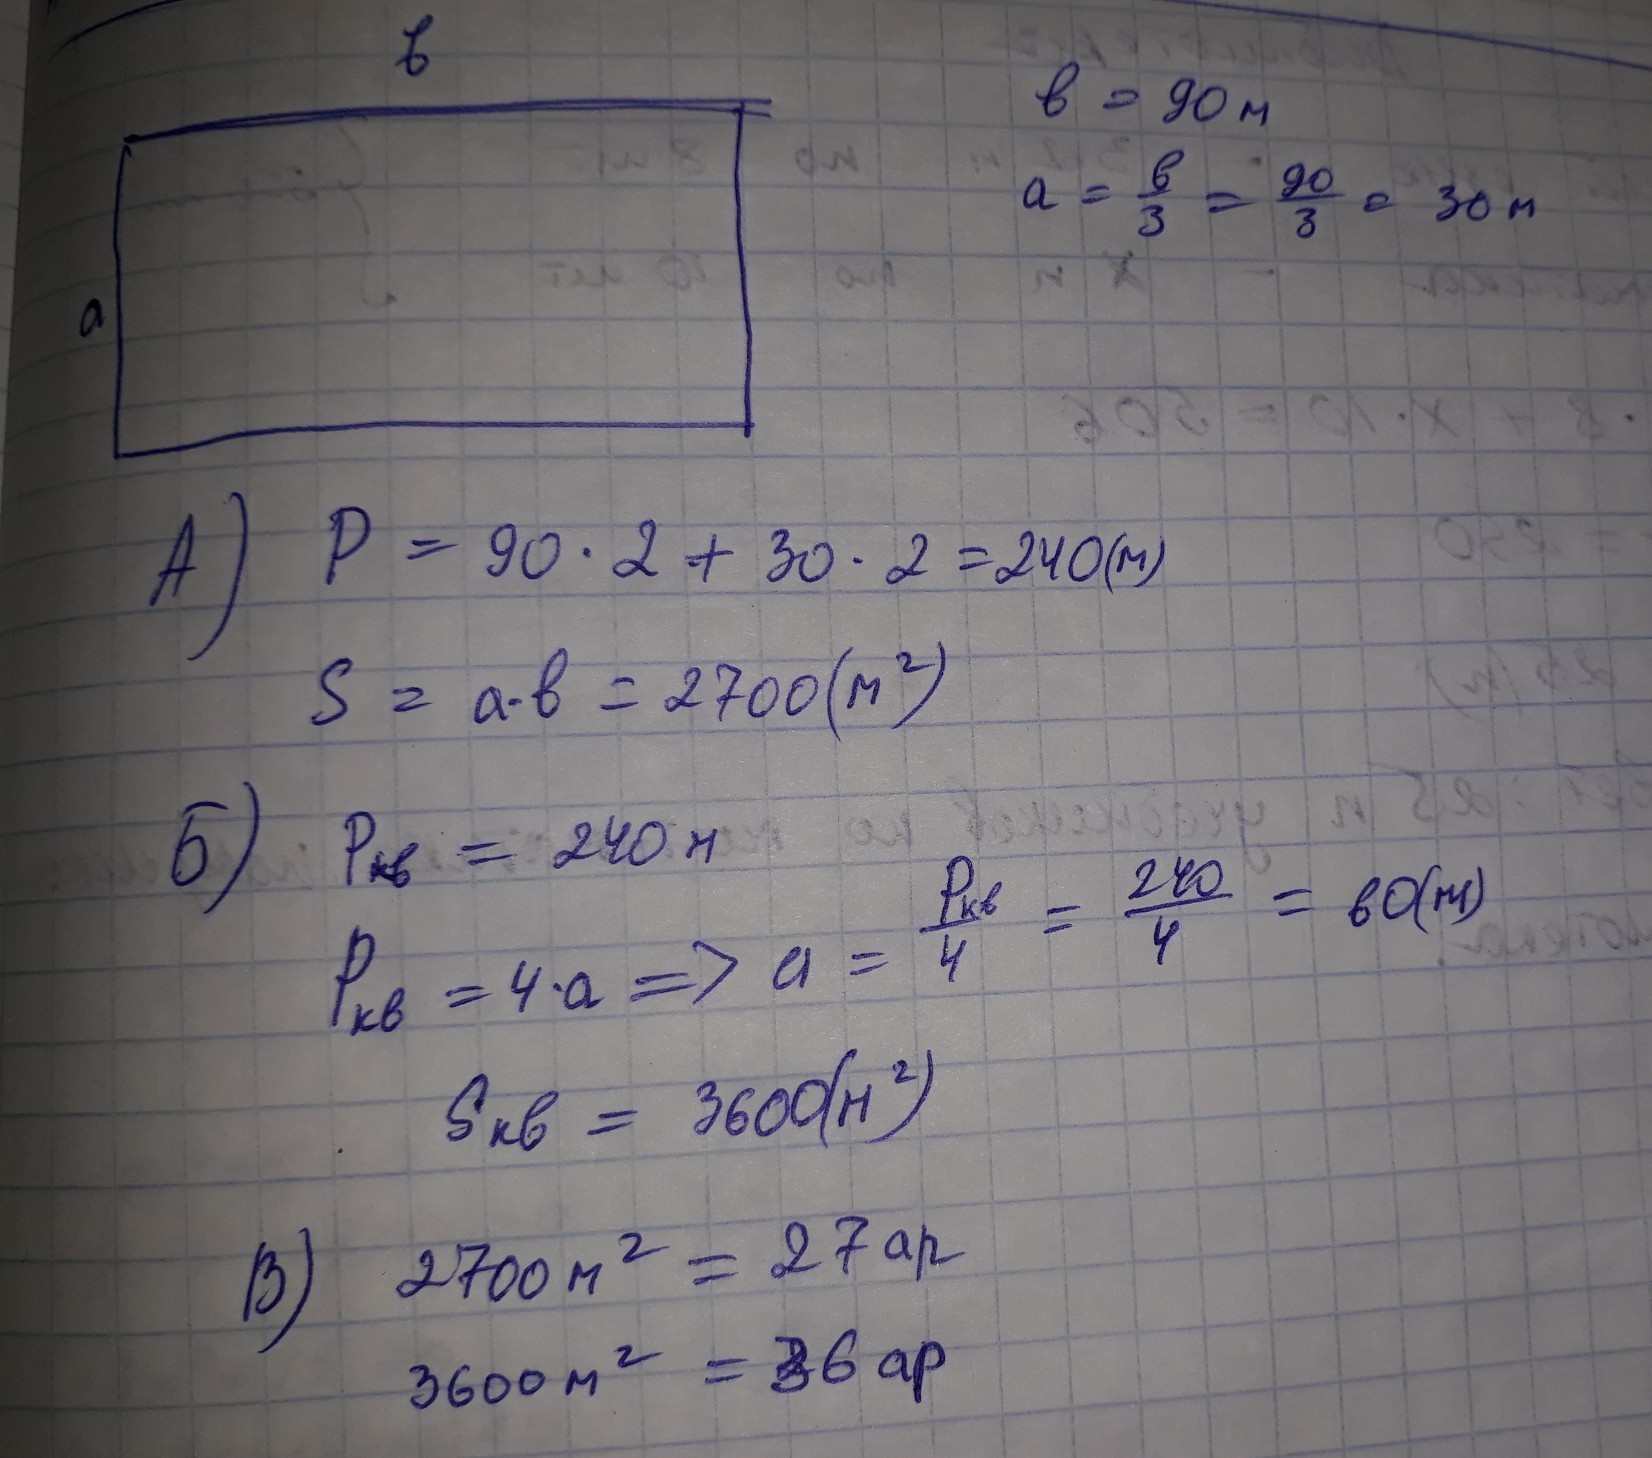 в
в = 90 м
a = в/3 = 90/3 = 30 м
a
А) P = 90 · 2 + 30 · 2 = 240(м)
S = a·в = 2700(м²)
Б) Pкв = 240 м
Pкв = 4·a => a = Pкв/4 = 240/4 = 60(м)
Sкв = 3600(м²)
В) 2700 м² = 27 ар
3600 м² = 36 ар